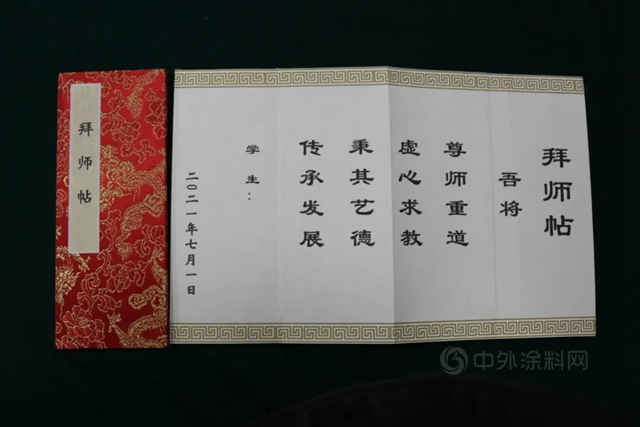 拜师帖
拜师帖
吾将
尊师重道
虚心求教
秉其艺德
传承发展
学生：
二〇二一年七月一日
中外涂料网